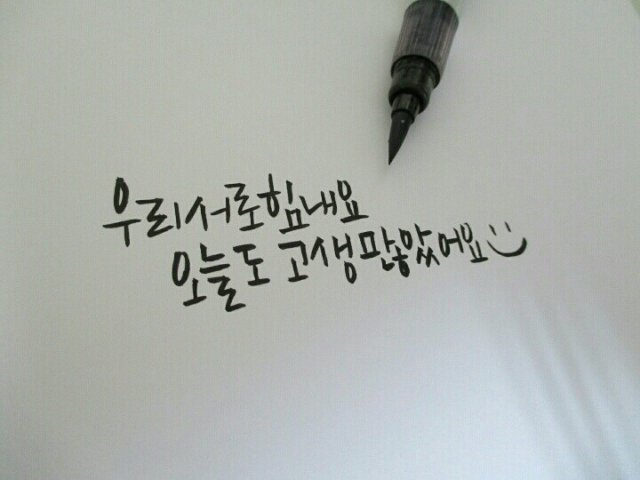 우리서로힘내요
오늘도 고생많았어요